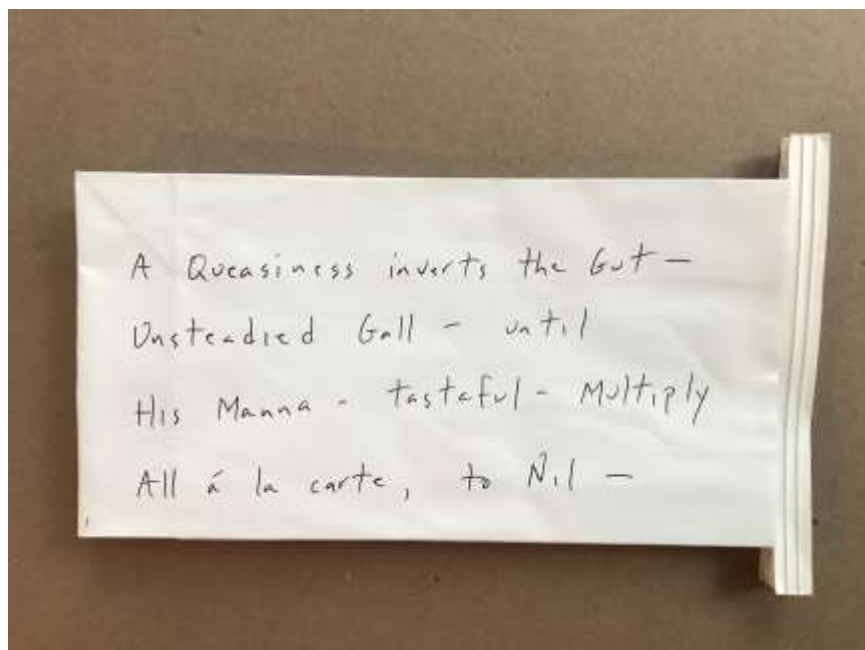 A Queasiness inverts the Gut —
Unsteadied Gall - until
His Manna - tasteful - Multiply
All á la carte, to Nil —